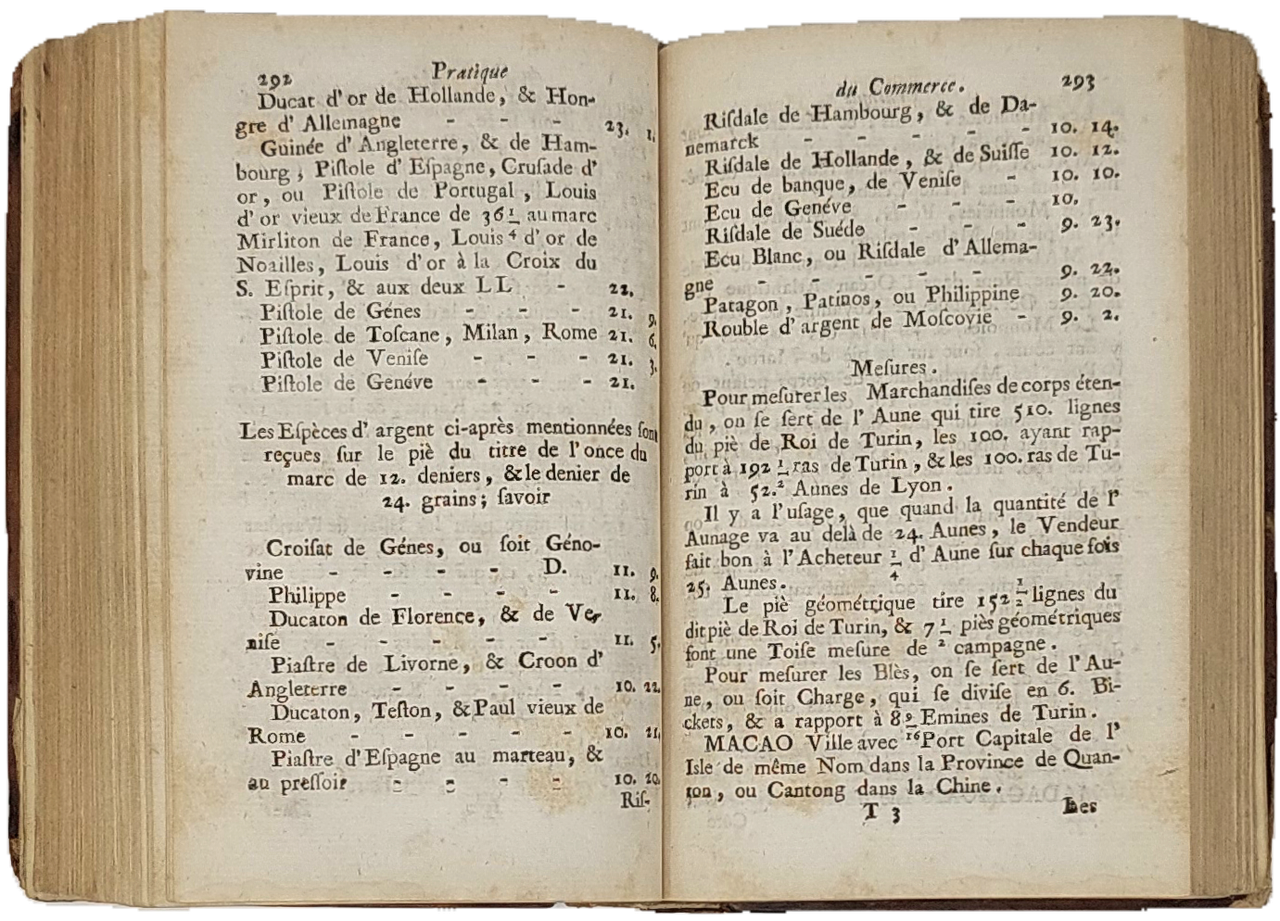 292 Pratique
Ducat d' or de Hollande, & Hon-
gre d' Allemagne - - - 23. 1.
Guinée d' Angleterre, & de Ham-
bourg, Piſtole d' Eſpagne, Cruſade d'
or, ou Piſtole de Portugal, Louis
d' or vieux de France de 36 1/4 au marc
Mirliton de France, Louis d' or de
Noailles, Louis d' or à la Croix du
S. Eſprit, & aux deux LL - 22.
Piſtole de Génes - - - 21. 9.
Piſtole de Toſcane, Milan, Rome 21. 6.
Piſtole de Veniſe - - - 21. 3.
Piſtole de Genéve - - - 21.
Les Eſpèces d' argent ci-après mentionnées ſont
reçues ſur le piè du titre de l' once du
marc de 12. deniers, & le denier de
24. grains; ſavoir
Croiſat de Génes, ou ſoit Géno-
vine - - - - D. 11. 9.
Philippe - - - - 11. 8.
Ducaton de Florence, & de Ve-
niſe - - - - - - 11. 5.
Piaſtre de Livorne, & Croon d'
Angleterre - - - - 10. 22.
Ducaton, Teſton, & Paul vieux de
Rome - - - - - 10. 21.
Piaſtre d' Eſpagne au marteau, &
au preſſoir - - - - 10. 20.
Riſ-
du Commerce. 293
Riſdale de Hambourg, & de Da-
nemarck - - - - - 10. 14.
Riſdale de Hollande, & de Suiſſe 10. 12.
Ecu de banque, de Veniſe - 10. 10.
Ecu de Genéve - - - 10.
Riſdale de Suéde - - - 9. 23.
Ecu Blanc, ou Riſdale d' Allema-
gne - - - - - 9. 22.
Patagon, Patinos, ou Philippine 9. 20.
Rouble d' argent de Moſcovie - 9. 2.
Meſures.
Pour meſurer les Marchandiſes de corps éten-
du, on ſe ſert de l' Aune qui tire 510. lignes
du piè de Roi de Turin, les 100. ayant rap-
port à 192 1/2 ras de Turin, & les 100. ras de Tu-
rin à 52. Aunes de Lyon.
Il y a l' uſage, que quand la quantité de l'
Aunage va au delà de 24. Aunes, le Vendeur
fait bon à l' Acheteur 1/4 d' Aune ſur chaque fois
25. Aunes.
Le piè géométrique tire 152 1/2 lignes du
dit piè de Roi de Turin, & 7 1/2 piès géométriques
font une Toiſe meſure de campagne.
Pour meſurer les Blès, on ſe ſert de l' Au-
ne, ou ſoit Charge, qui ſe diviſe en 6. Bi-
ckets, & a rapport à 8 9/16 Emines de Turin.
MACAO Ville avec Port Capitale de l'
Isle de même Nom dans la Province de Quan-
ton, ou Cantong dans la Chine.
T 3 Les